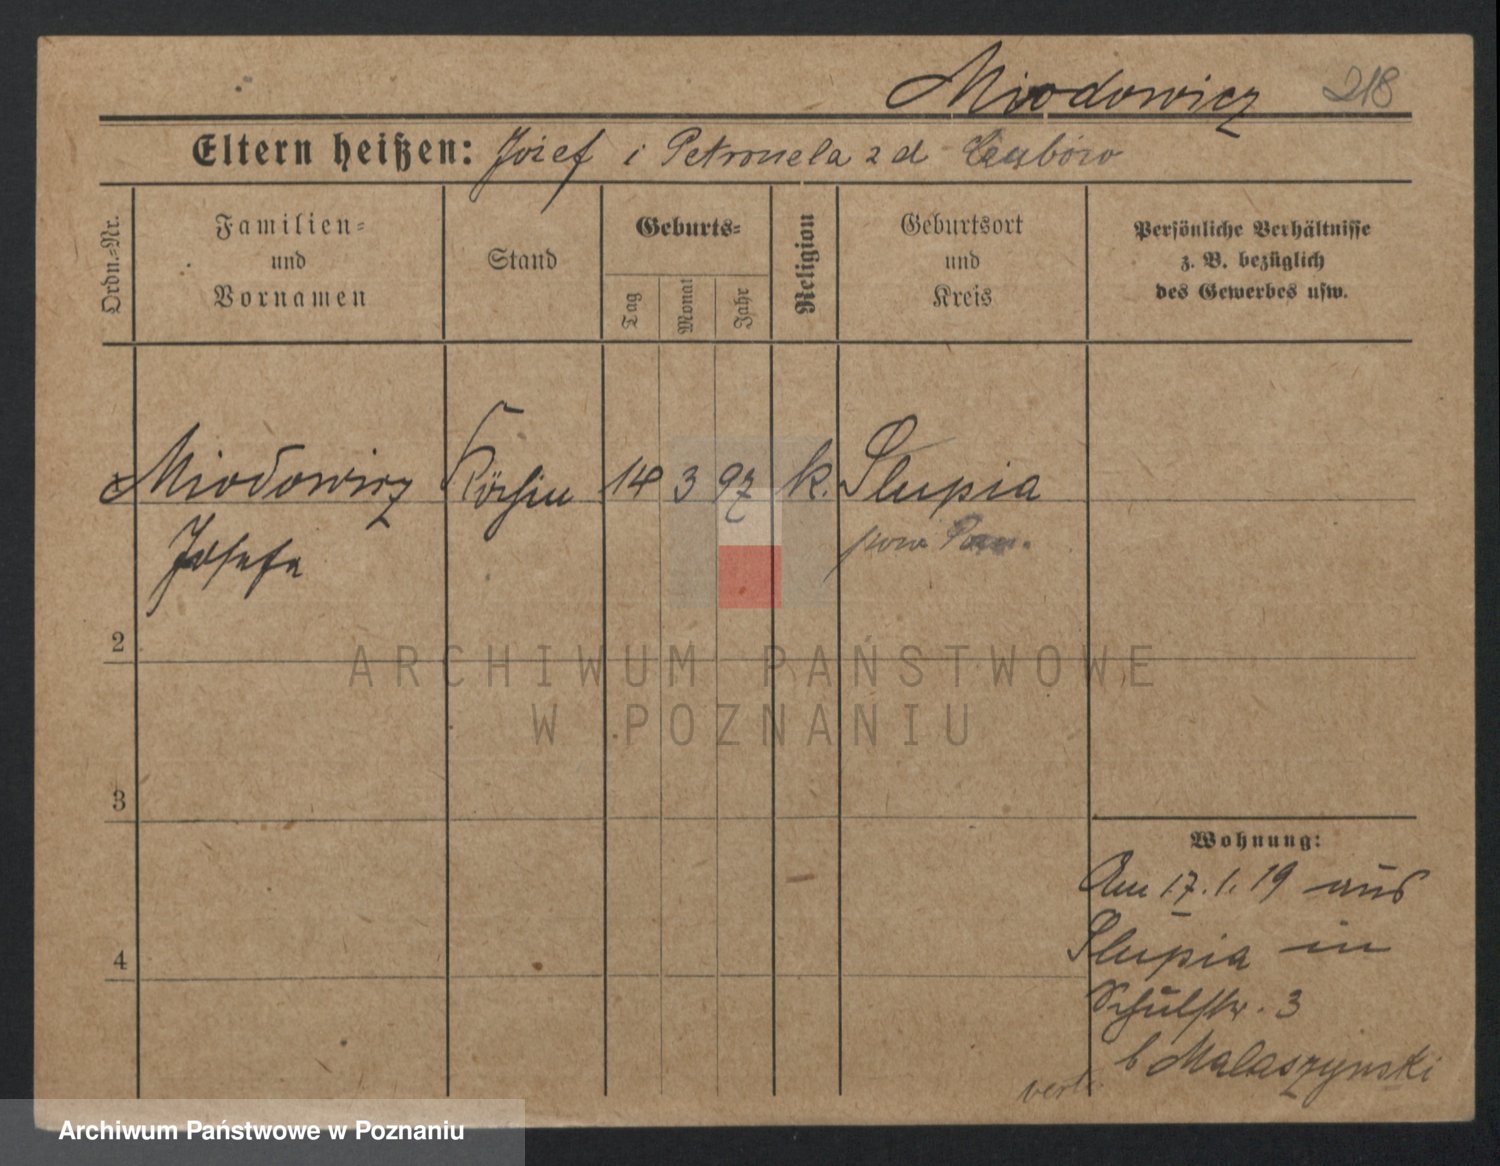 Miodowicz 218
Eltern heißen: Józef i Petronela z d
Ordn.-Nr.
Familien-
und
Vornamen
Stand
Geburts-
Tag
Monat
Jahr
Religion
Geburtsort
und
Kreis
Persönliche Verhältnisse
z. B. bezüglich
des Gewerbes usw.
Miodowicz Köchin 14 3 97 k. Slupia
Josefa pow
2
ARCHIWUM PAŃSTWOWE
W POZNANIU
3
Wohnung:
Am 17.1.19 aus
Slupia in
4
Schulstr. 3
b Malaszynski
Archiwum Państwowe w Poznaniu